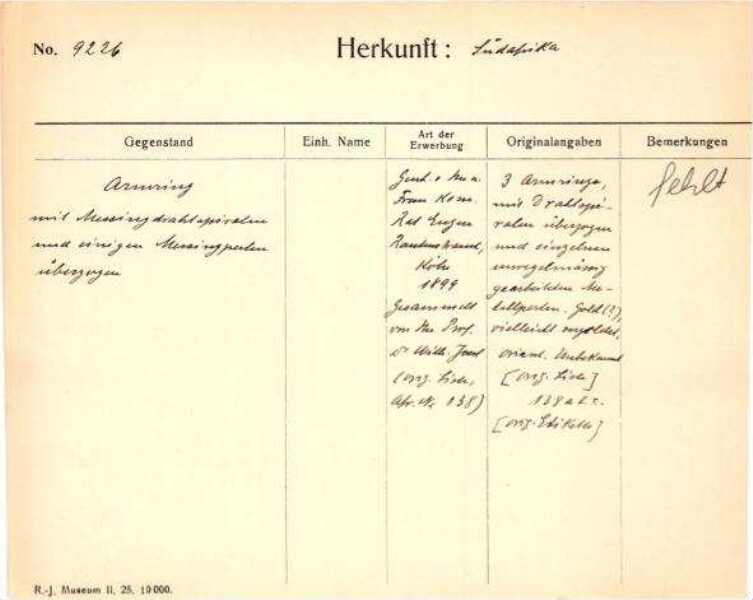 No. 9226
Herkunft: Südafrika
Gegenstand
Einh. Name
Art der Erwerbung
Originalangaben
Bemerkungen
Armring
mit Messingdrahtspiralen
und einigen Messingperlen
überzogen
Gesch. v.
Frau Kom.
Rat Eugen
Rautenstrauch,
Köln
1899
Gesammelt
von Prof.
Dr Wilh. Joest
(orig. Liste,
Afr. Nr. 138)
3 Armringe,
mit Drahtspi-
ralen überzogen
und einzelnen
unregelmässig
gearbeiteten Me-
tallperlen. Gold (?),
vielleicht vergoldet,
orient. Unbekannt
[orig. Liste]
138 a b c.
[orig. Etikette]
fehlt
R.-J. Museum II, 25. 10000.